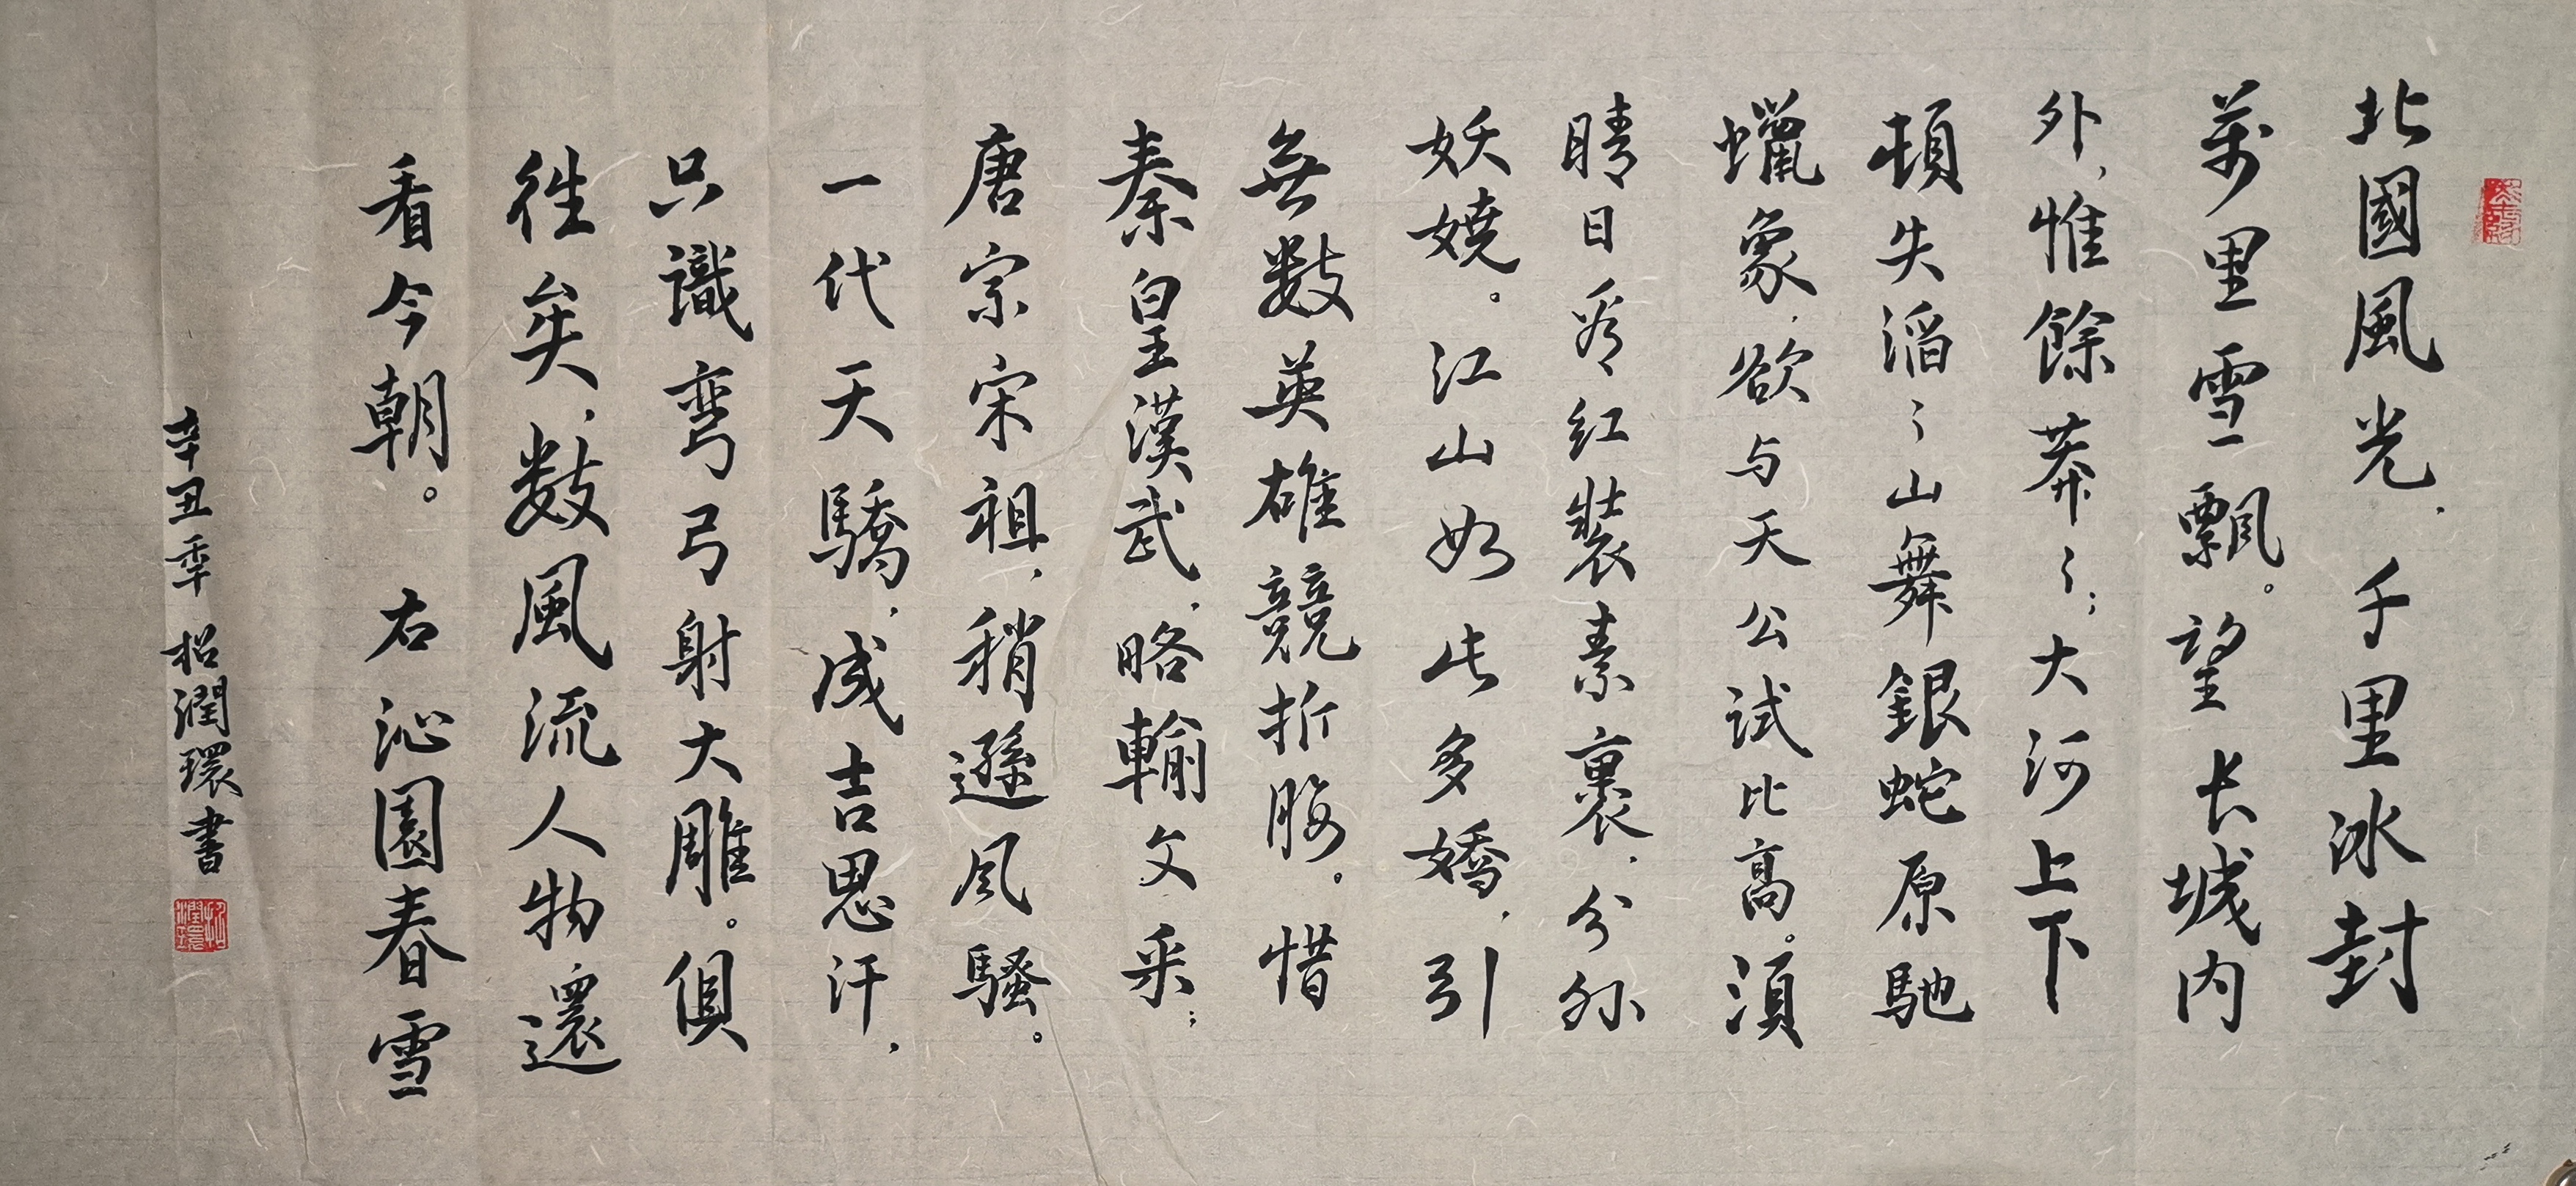 北國風光，千里冰封
萬里雪飄。望长城内
外，惟餘莽〻；大河上下
頓失滔〻山舞銀蛇原馳
蠟象，欲与天公试比高。須
晴日看红裝素裹，分外
妖嬈。江山如此多嬌，引
無数英雄競折腰。惜
秦皇漢武，略輸文采；
唐宗宋祖，稍遜风騷。
一代天驕，成吉思汗，
只識弯弓射大雕。俱
往矣，数風流人物還
看今朝。右沁園春雪
辛丑季 招潤環書
招潤環